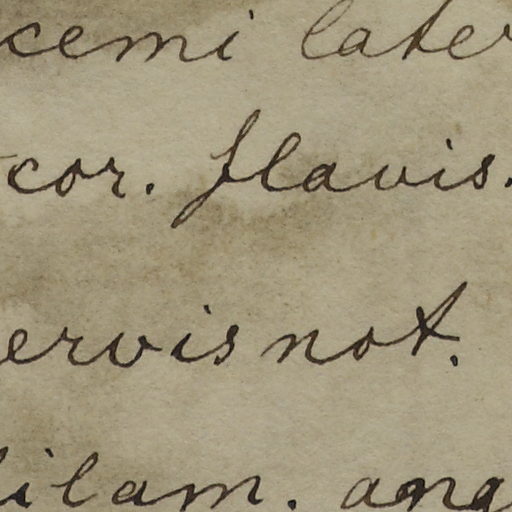 cemi later
cor. flavis.
ervis not.
ilam. ang